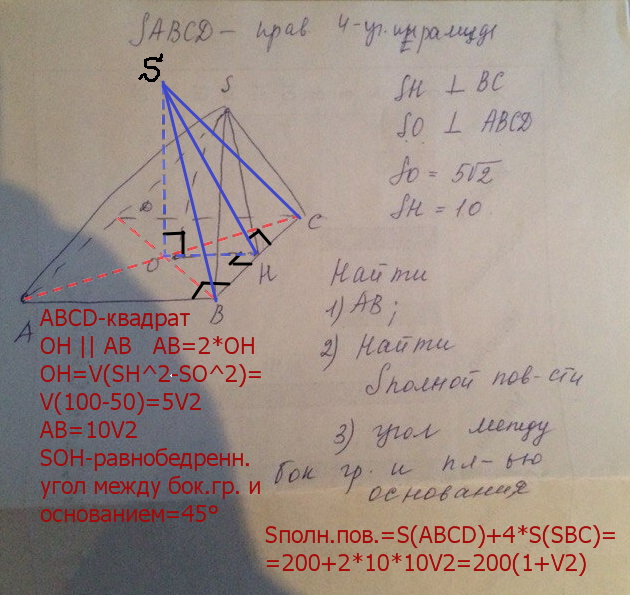 SABCD – прав. 4-уг. пирамида
S
S
SH ⊥ BC
SO ⊥ ABCD
SO = 5√2
SH = 10
D
C
O
H
A
B
Найти
1) AB;
2) Найти
Sполной пов-сти
3) угол между
бок гр. и пл-ью
основания
ABCD-квадрат
OH || AB AB=2*OH
OH=V(SH^2-SO^2)=
V(100-50)=5V2
AB=10V2
SOH-равнобедренн.
угол между бок.гр. и
основанием=45°
Sполн.пов.=S(ABCD)+4*S(SBC)=
=200+2*10*10V2=200(1+V2)